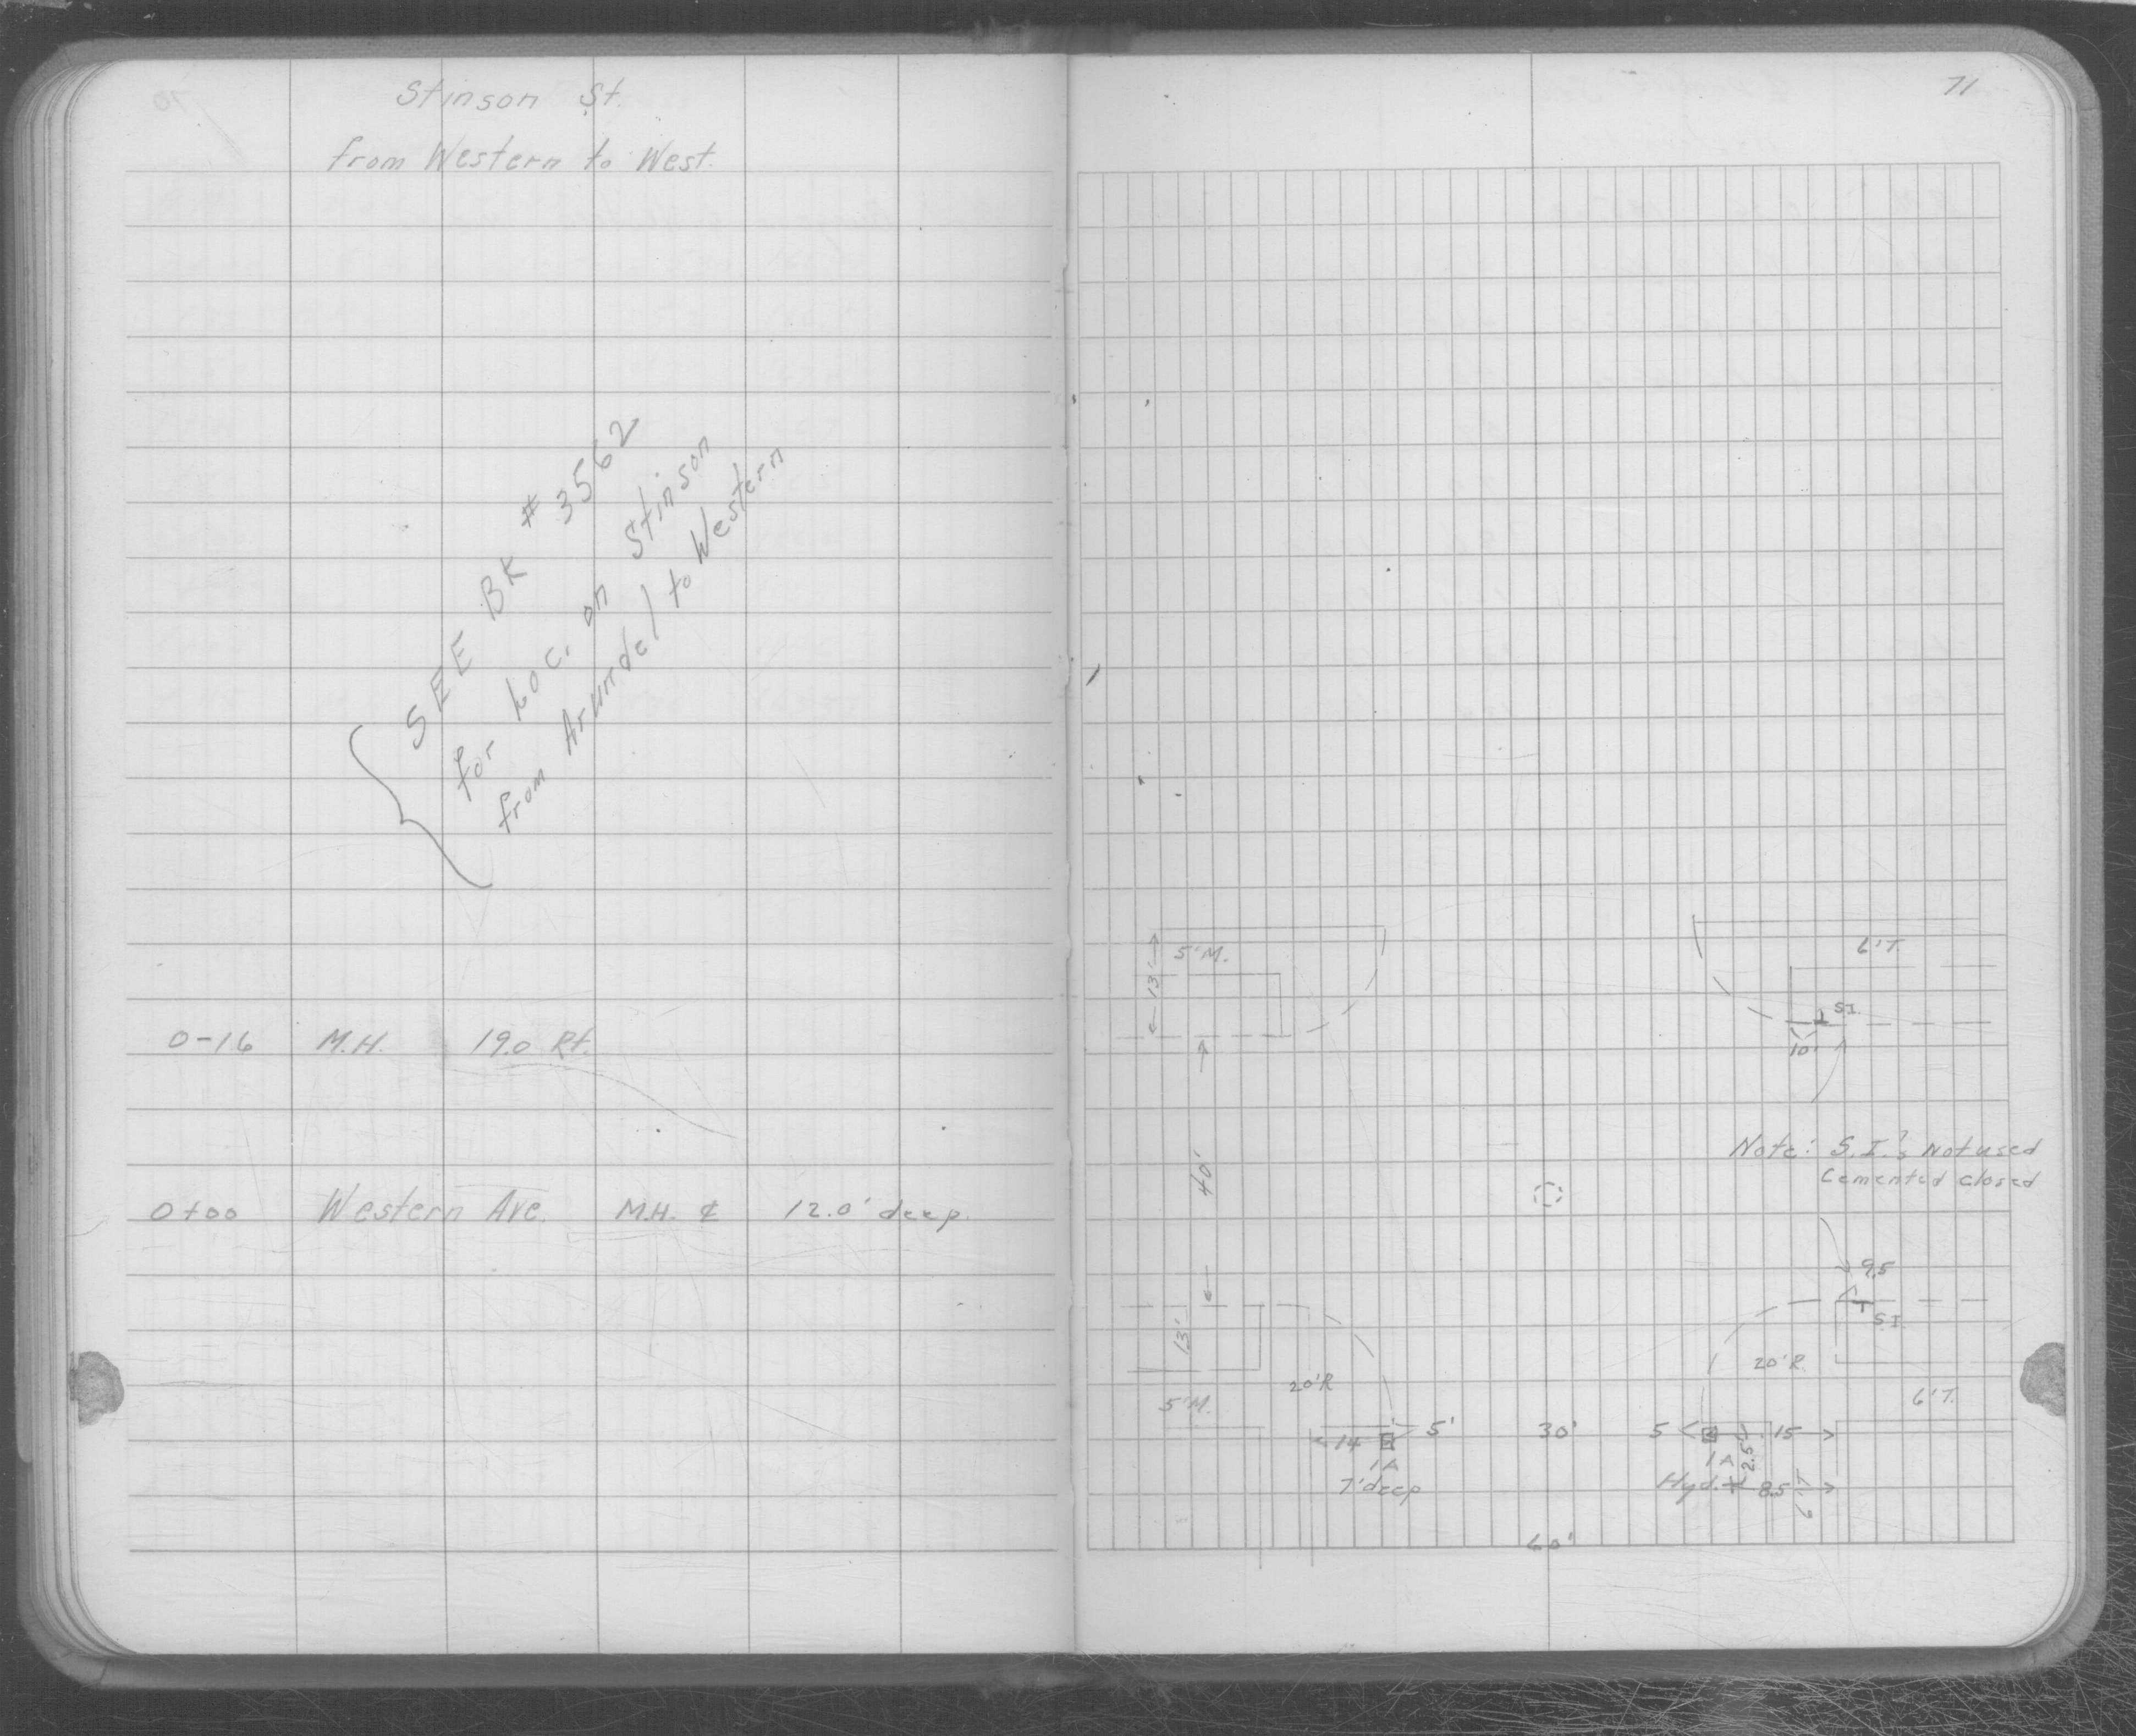 Stinson St.
from Western to West.
SEE BK # 3562
for Loc. on Stinson
from Arundel to Western
0-16 M.H. 19.0 Rt.
0+00 Western Ave. M.H. ₵ 12.0' deep.
71
5'M.
13'
6'T.
S.I.
10'
40'
Note: S.I.s Not used
Cemented closed
9.5
S.I.
13'
20'R
20'R.
5'M.
6'T.
14
5'
30'
5
15
1A
7'deep
1A
2.5'
Hyd.
8.5
6'T
60'